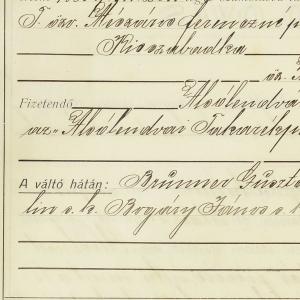 T. özv. Mészáros Ferenczné
Kisszabadka
öz.
Fizetendő Alsólendva
az „Alsólendvai Takarékp
A váltó hátán: Brünner Guszt
lin s. k. Bogány János s. k